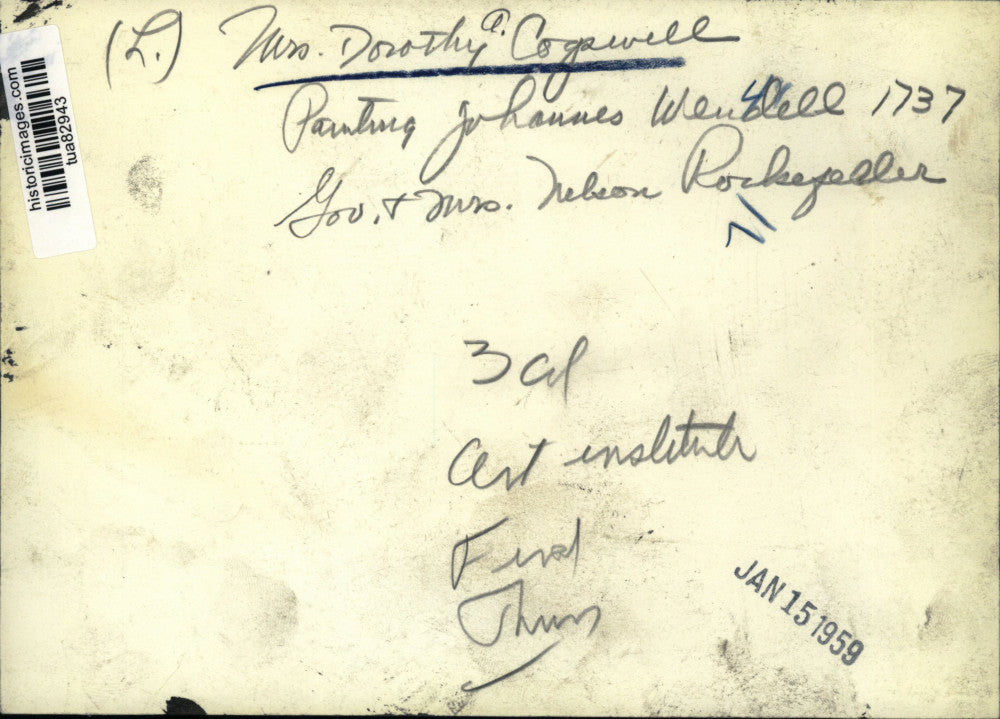 (L.) Mrs. Dorothy A. Cogswell
Painting Johannes Wendell 1737
Gov. & Mrs. Nelson Rockefeller
3 Col
Art institute
Thurs
JAN 15 1959
historicimages.com
tua82943